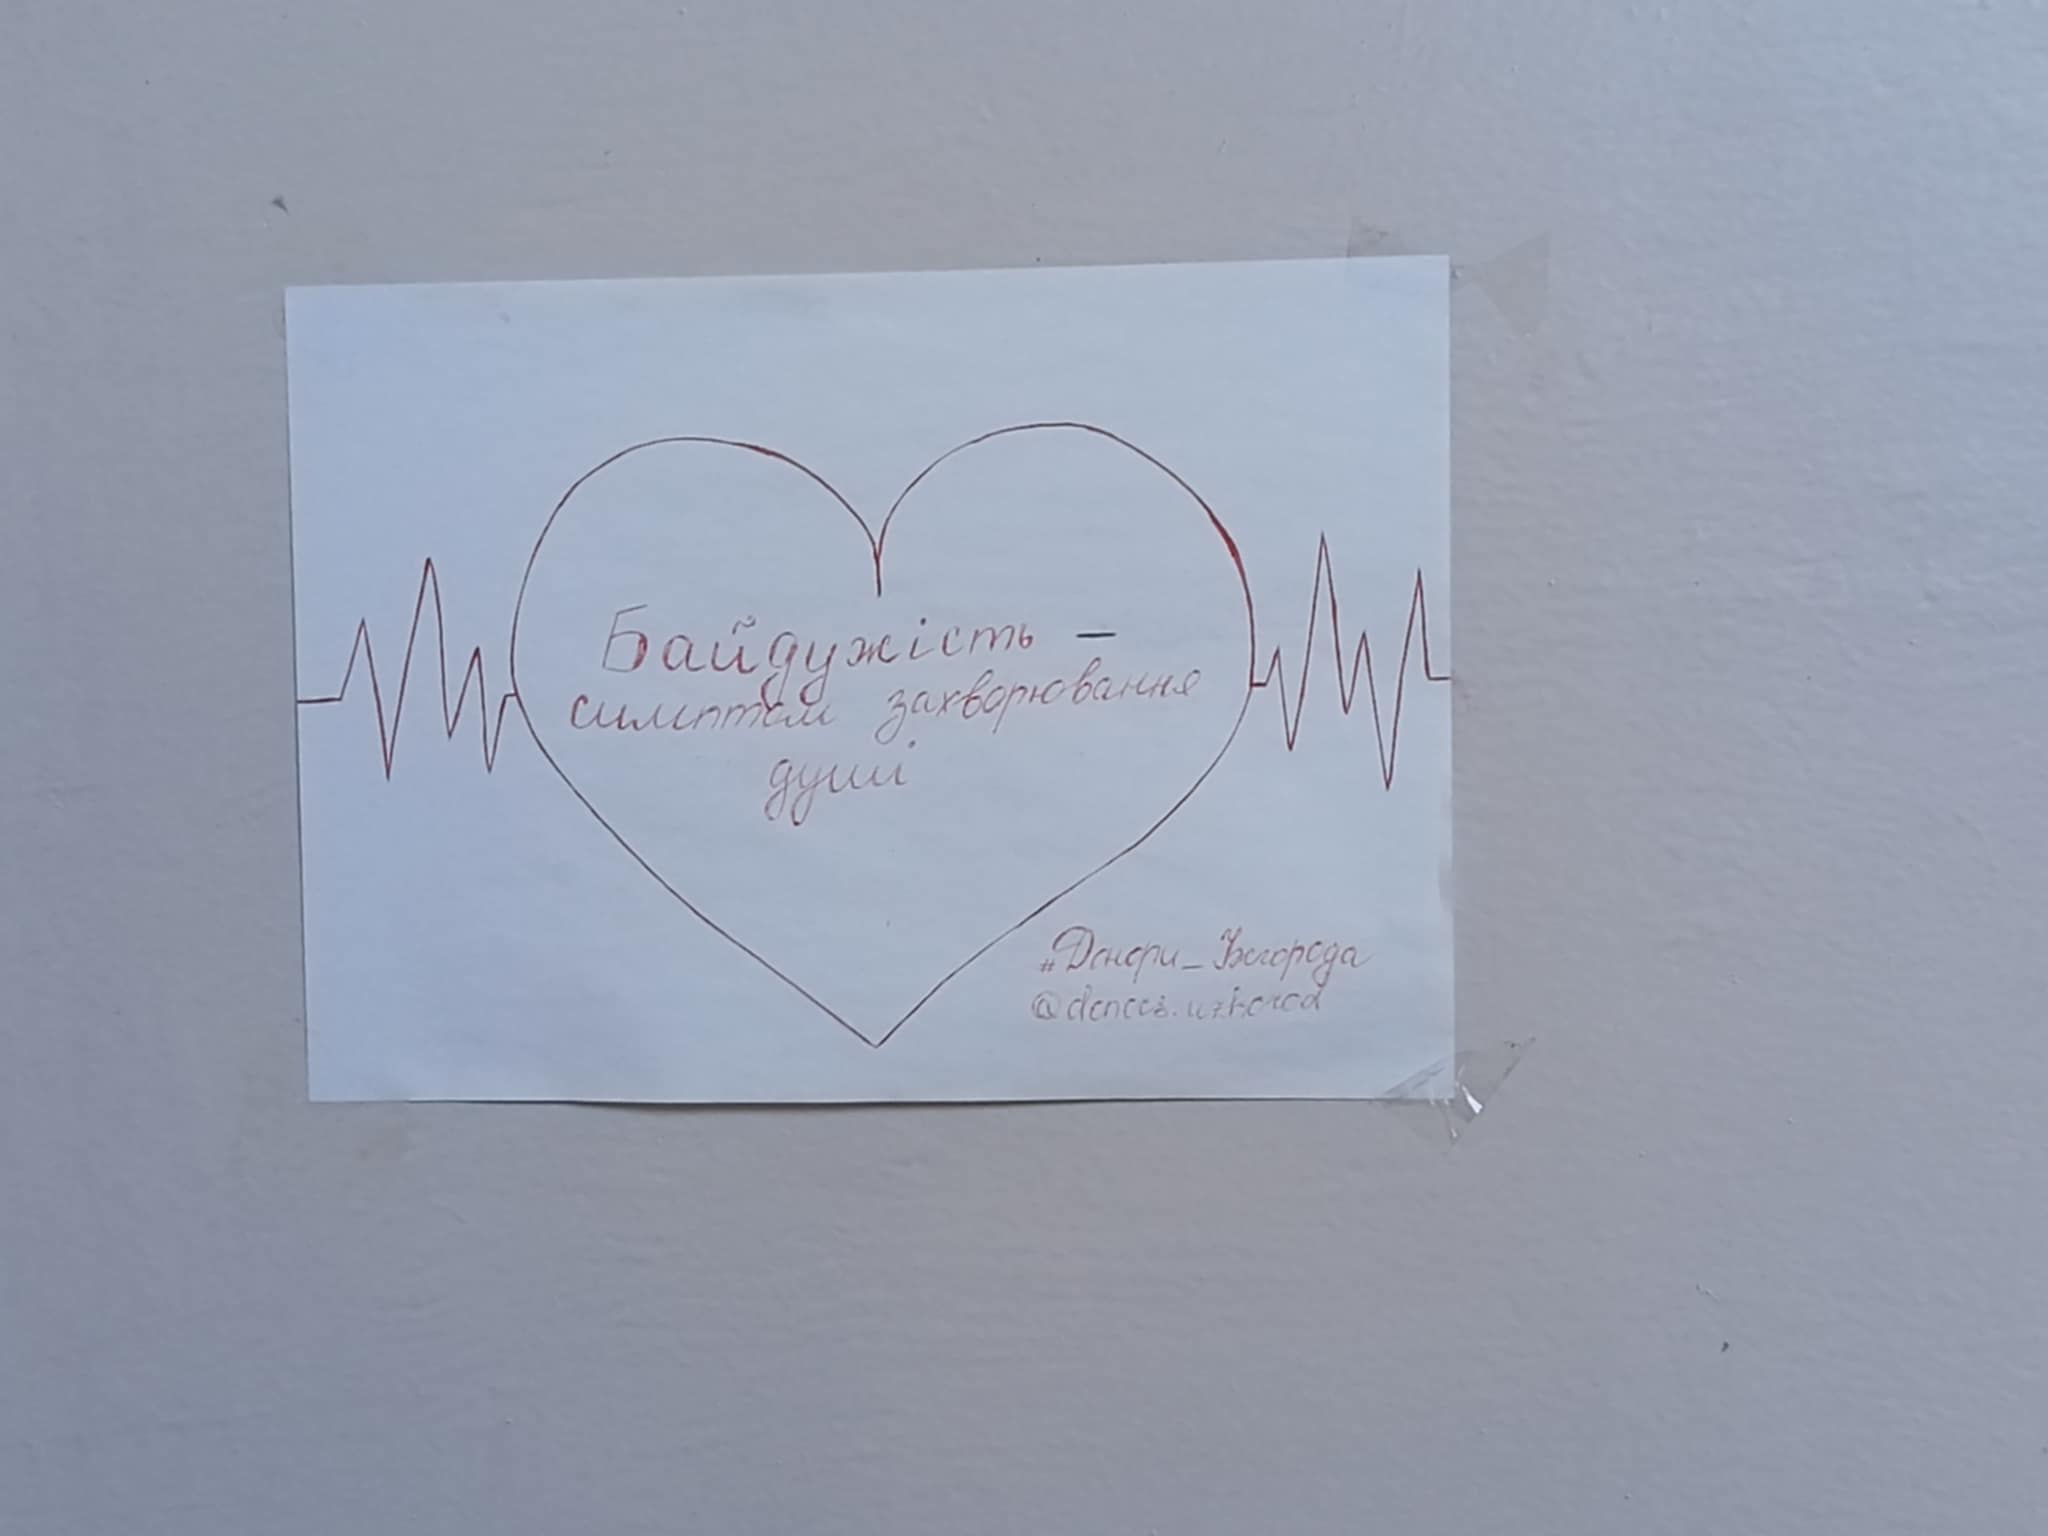 Байдужість –
симптом захворювання
душі
#Донори_Ужгорода
@donors.uzhorod